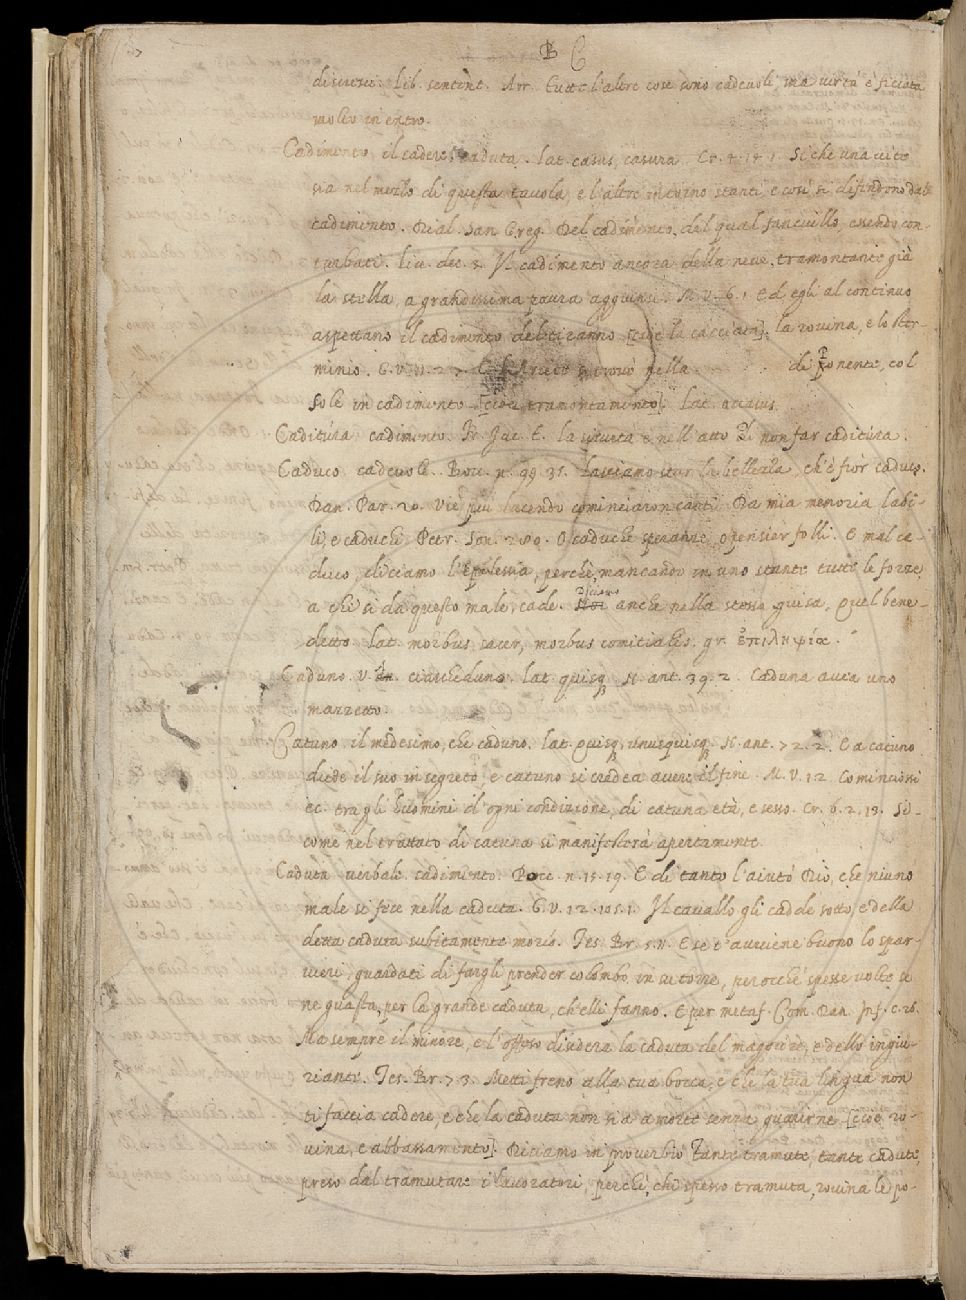 B C
discresci. Lib. sentent. Arr. Tutte l'altre cose sono cadevoli, ma virtù è ficcata
molto in entro.
Cadimento il cadere, caduta. lat. casus, casura. Cr. 4. 18. 1. Si che una vite
sia nel mezzo di questa tavola, e l'altre intorno stanti, e così si difendono dal
cadimento. Dial. San Greg. Del cadimento, del qual fanciullo, essendo con-
turbati. Liv. dec. 3. Il cadimento ancora della neve, tramontante già
la stella, a grandissima paura aggiunse. M. V. 6. 1. Ed egli al continuo
aspettano il cadimento del tiranno [cioè la cacciata], la rovina, e lo ster-
minio. G. V. 11. 2 7. si trovò nella di ponente, col
sole in cadimento [cioè, tramontamento]. lat. occasus.
Caditúra cadimento. Fr. Jac. T. la situità è nell'atto Di non far caditúra.
Caduco cadevole. Bocc. n. 99. 35. Lasciamo star la bellezza, ch'è fior caduco.
Dan. Par. 20. Vie più lucendo cominciaron canti Da mia memoria labi-
li, e caduchi. Petr. Son. 280. O caduche speranze, o pensier folli. E mal ca-
duco, diciamo l'Epilessia, perchè, mancando in uno stante tutte le forze,
a chi si dà questo male, cade. Diciamo anche nella stessa guisa, quel bene-
detto. lat. morbus sacer, morbus comitialis. gr. ἐπιληψία.
Caduno. V. A. ciascheduno. lat. quisq; N. ant. 39. 2. Caduna avea uno
mazzetto.
Catuno il medesimo, che caduno. lat. quisq; unusquisq; N. ant. 72. 2. E a catuno
diede il suo in segreto, e catuno si credea avere il fine. M. V. 12. Cominciossi
ec. tra gli huomini d'ogni condizione, di catuna età, e sesso. Cr. 6. 2. 13. Sì-
come nel trattato di catuna si manifesterà apertamente.
Caduta verbale. cadimento. Bocc. n. 15. 19. E di tanto l'aiutò Dio, che niuno
male si fece nella caduta. G. V. 12. 105. 1. Il cavallo gli cadde sotto, e della
detta caduta subitamente morìo. Tes. Br. 5. V. E se t'avviene buono lo spar-
viere, guardati di fargli prender colombo in su torre, perocché spesse volte se
ne guasta, per la grande caduta, ch'elli fanno. E per metaf. Com. Dan. Inf. c. 26.
Ma sempre il minore, e l'offeso disidera la caduta del maggiore, e dello ingiu-
riante. Tes. Br. 7 3. Metti freno alla tua bocca, e che la tua lingua non
ti faccia cadere, e che la caduta non sia a morte senza guarirne [cioè ro-
vina, e abbassamento]. Diciamo in proverbio Tante tramute, tante cadute,
preso dal tramutare i lavoratori, perchè, chi spesso tramuta, rovina le po-